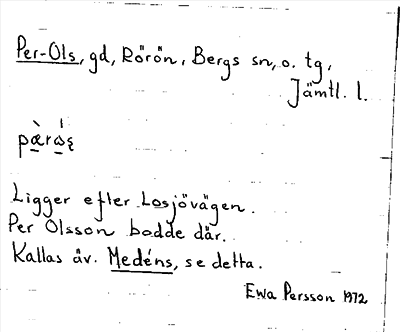 Per-Ols, gd, Rörön, Bergs sn, o. tg,
Jämtl. l.
Ligger efter Losjövägen.
Per Olsson bodde där.
Kallas äv. Medéns, se detta.
Ewa Persson 1972